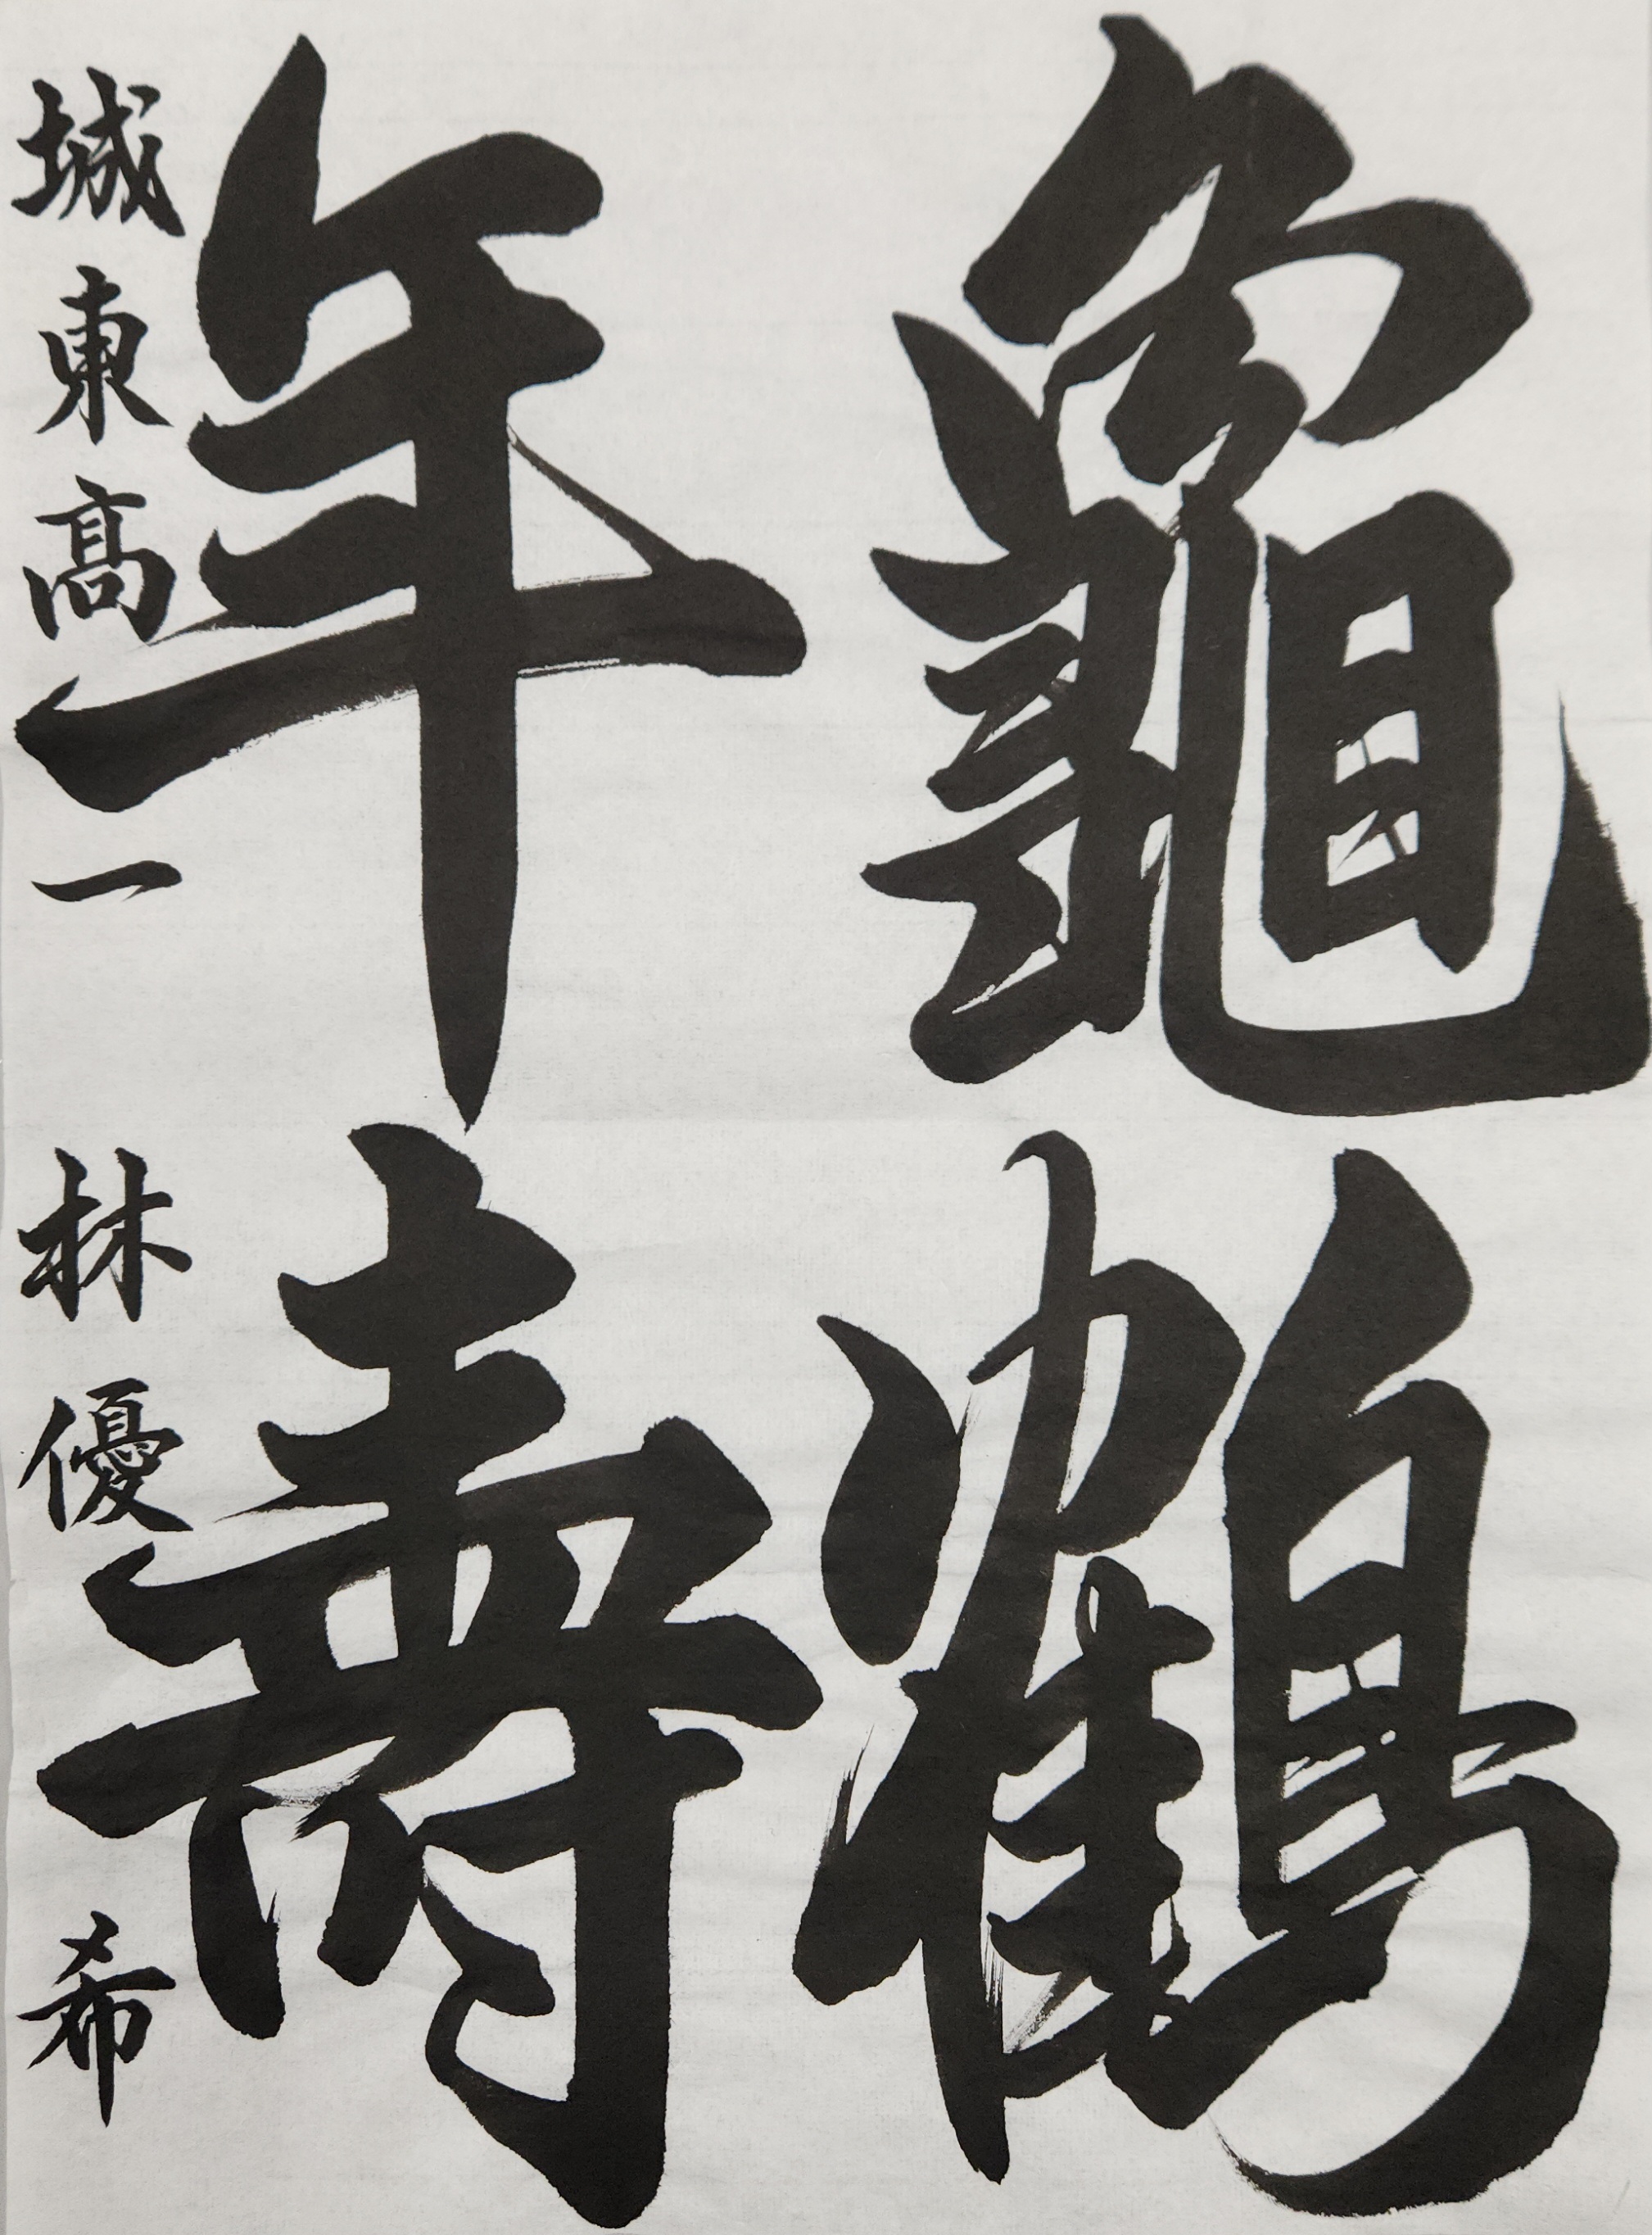 龜鶴
年寿
城東高一 林優希